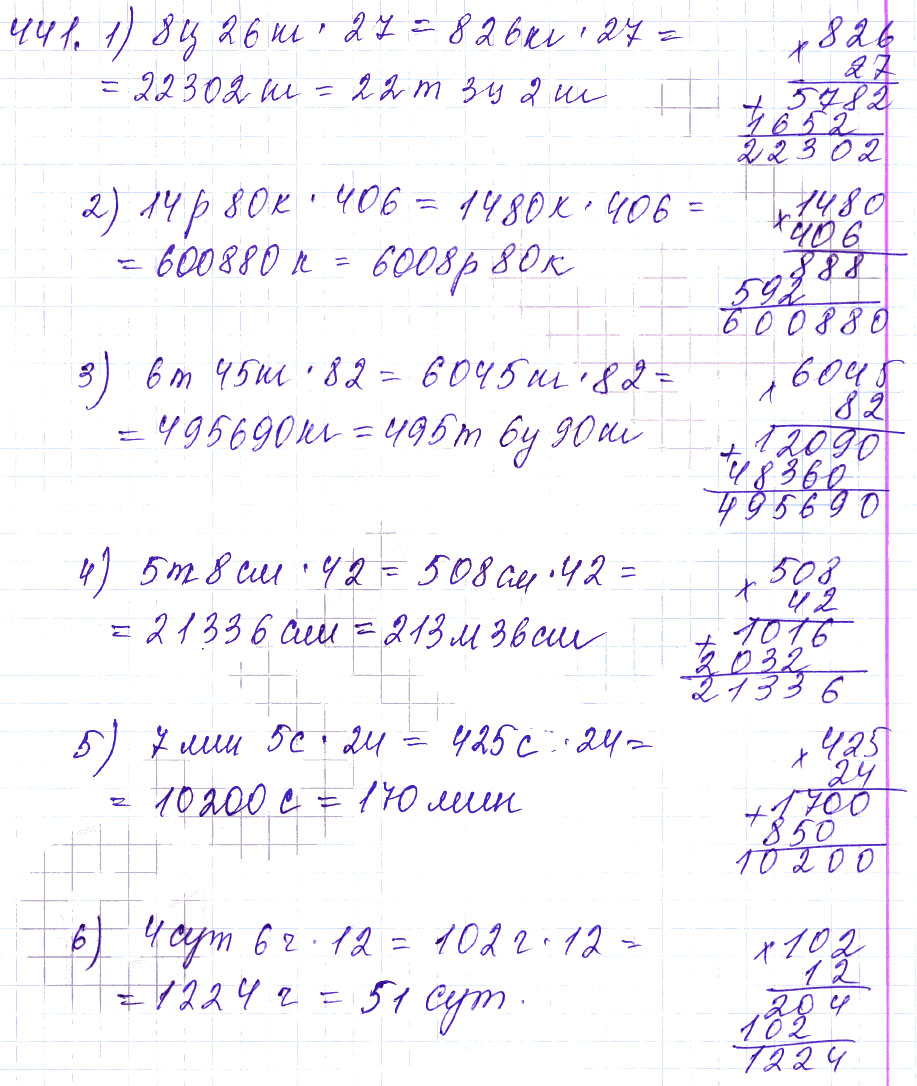 441. 1) 8ц 26кг · 27 = 826кг · 27 =
= 22302 кг = 22т 3ц 2 кг
× 826
27
+ 5782
1652
22302
2) 14р 80к · 406 = 1480к · 406 =
= 600880 к = 6008р 80к
× 1480
406
888
592
600880
3) 6т 45кг · 82 = 6045 кг · 82 =
= 495690кг = 495т 6ц 90кг
× 6045
82
+ 12090
48360
495690
4) 5м 8 см · 42 = 508 см · 42 =
= 21336 см = 213 м 36 см
× 508
42
+ 1016
2032
21336
5) 7 мин 5с · 24 = 425 с · 24 =
= 10200 с = 170 мин
× 425
24
+ 1700
850
10200
6) 4 сут 6 ч · 12 = 102 ч · 12 =
= 1224 ч = 51 сут.
× 102
12
204
102
1224